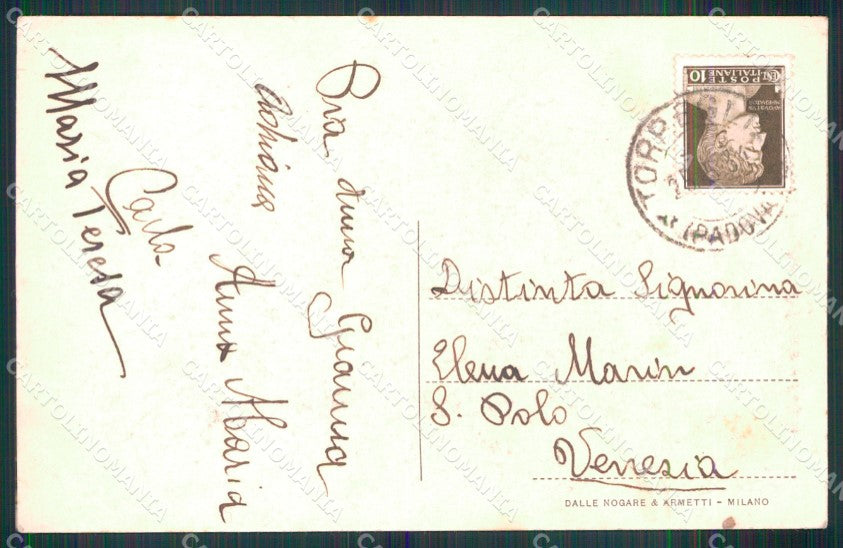 Pia Anna Gianna
Adriana
Anna Maria
Carla
Maria Teresa
POSTE ITALIANE
CENT. 10
TORREGLIA
(PADOVA)
Distinta Signorina
Elena Marin
S. Polo
Venezia
DALLE NOGARE & ARMETTI - MILANO
CARTOLINOMANIA